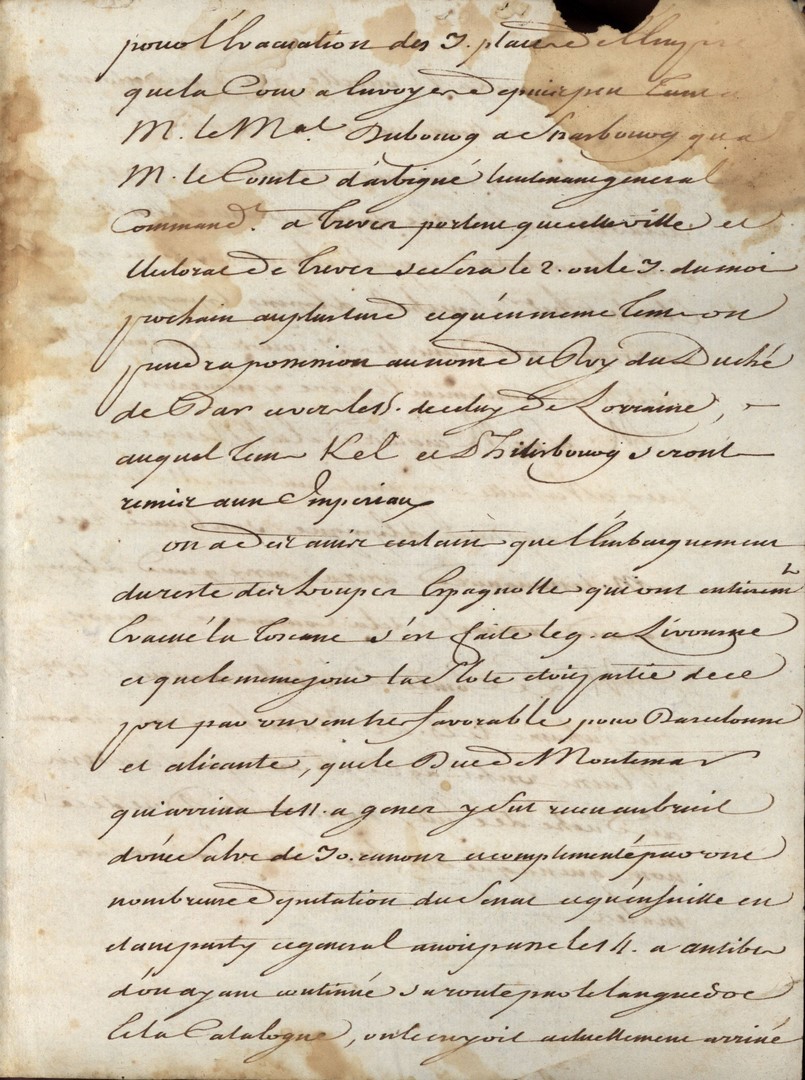 pour l'Evacuation des 3. places de l'Empire
que la Cour a Envoyer depuis peu tant a
M. le Mal. Dubourg a Strasbourg qu'a
M. le Comte d'arbigné lieutenant general
Command.t a Treves portent que cette ville et
Electorat de Treves se Sera le 2. ou le 3. du moi
prochain au plus tard et qu'en meme tems on
prendra possession au nom du Roy du Duché
de Bar et vers les 15. de celuy de Lorraine,
auquel tems Kel et Philisbourg seront
remis aux Imperiaux
on a des avis certains que l'Embarquement
du reste des troupes Espagnolle qui ont entierem.t
Evacué la Toscane s'est faite le 9. a Livourne
et que le meme jour la Flote étoit partie de ce
port par un vent tres favorable pour Barcelonne
et alicante, que le Duc de Montemar
qui arriva le 11. a genes y fut receu au bruit
d'une Salve de 30. canons et complimenté par une
nombreuse deputation du Senat et qu'ensuitte en
etant party ce general avoit passé le 14. a antibes
d'ou ayant continué sa route par le languedoc
et la Catalogne, on le croyoit actuellement arrivé